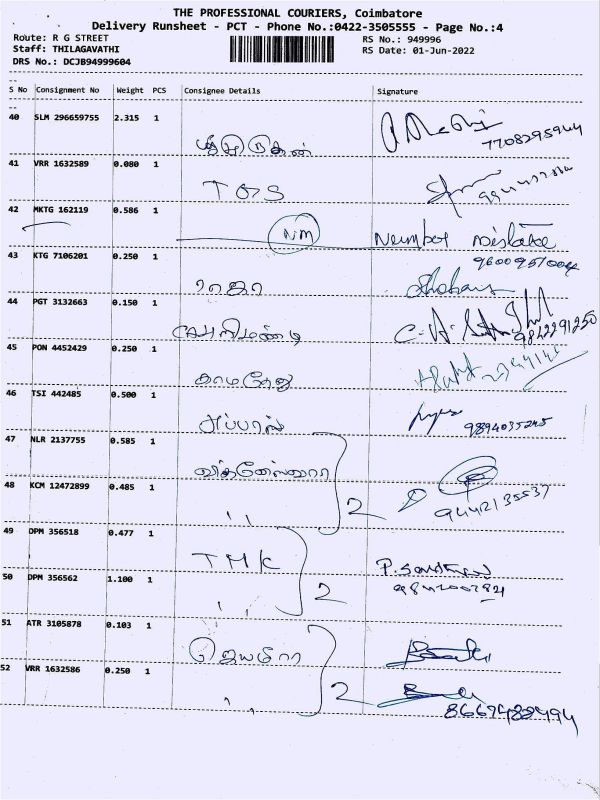 THE PROFESSIONAL COURIERS, Coimbatore
Delivery Runsheet - PCT - Phone No.:0422-3505555 - Page No.:4
Route: R G STREET
RS No.: 949996
Staff: THILAGAVATHI
RS Date: 01-Jun-2022
DRS No.: DCJB94999604
S No Consignment No Weight PCS Consignee Details Signature
40 SLM 296659755 2.315 1
7708295944
41 VRR 1632589 0.080 1
TOS
42 MKTG 162119 0.586 1
NM Number mistake
43 KTG 7106201 0.250 1 9600951004
ராஜா
44 PGT 3132663 0.150 1
9842291250
45 PON 4452429 0.250 1
காமதேனு
46 TSI 442485 0.500 1
அப்பாஸ் 9894035245
47 NLR 2137755 0.585 1
விக்னேஸ்வரா
48 KCM 12472899 0.485 1
,, 2 9442135537
49 DPM 356518 0.477 1
TMK
50 DPM 356562 1.100 1
,, 2
51 ATR 3105878 0.103 1
ஜெயமீரா
52 VRR 1632586 0.250 1
,, 2